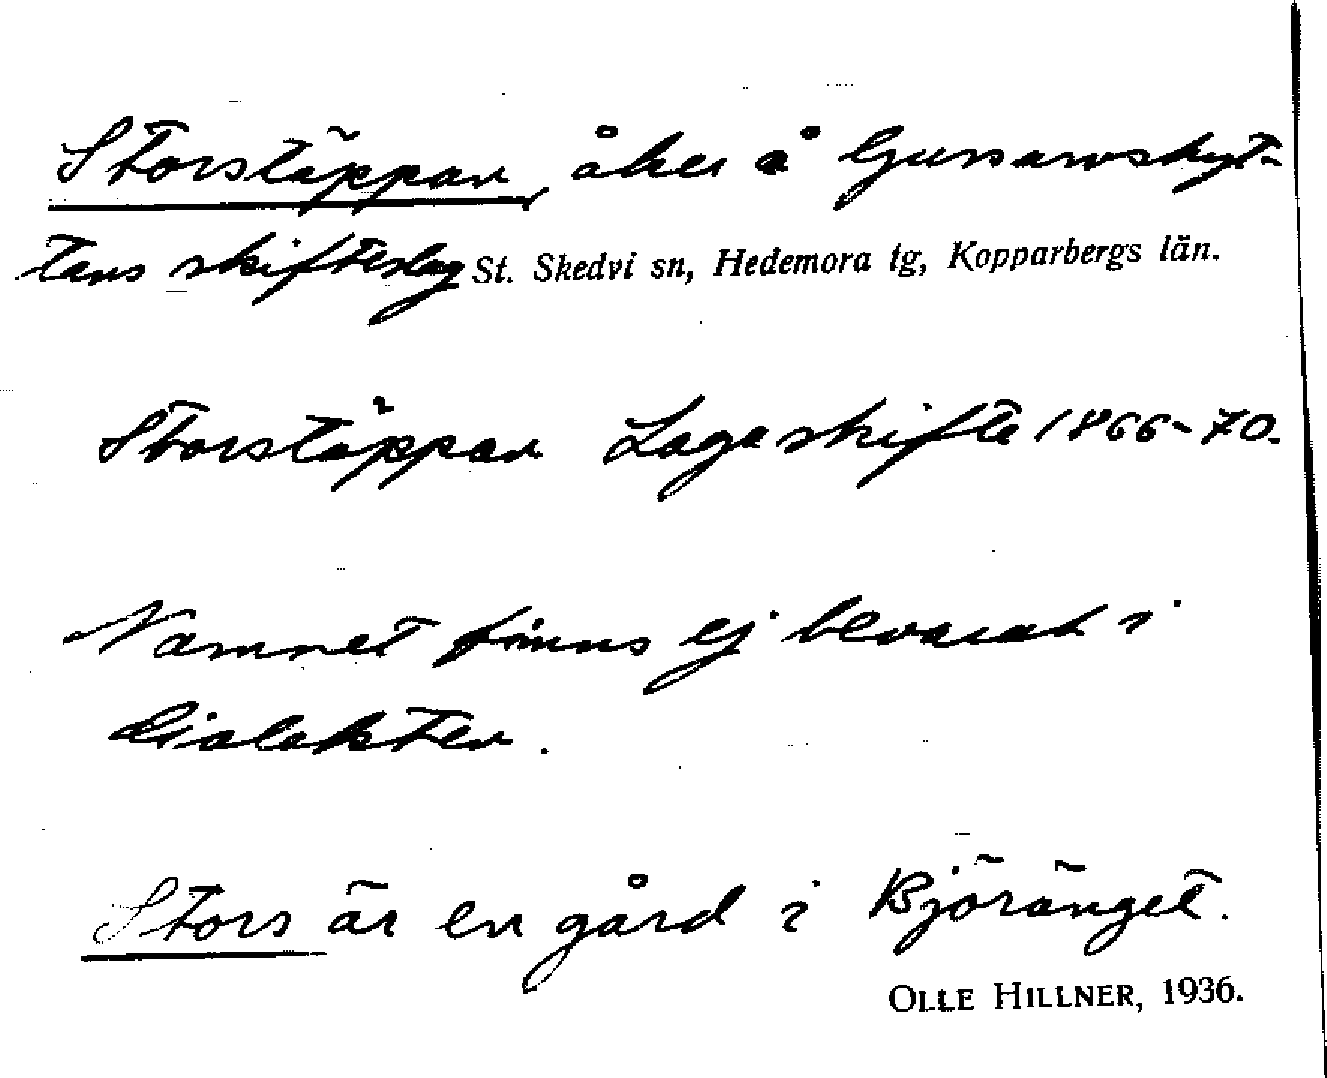 Storstäppan, åker å Gussarvshyt-
tans skifteslag St. Skedvi sn, Hedemora tg, Kopparbergs län.
Storstäppan Laga skifte 1866-70.
Namnet finns ej bevarat i
dialekten.
Stors är en gård i Björänget.
OLLE HILLNER, 1936.